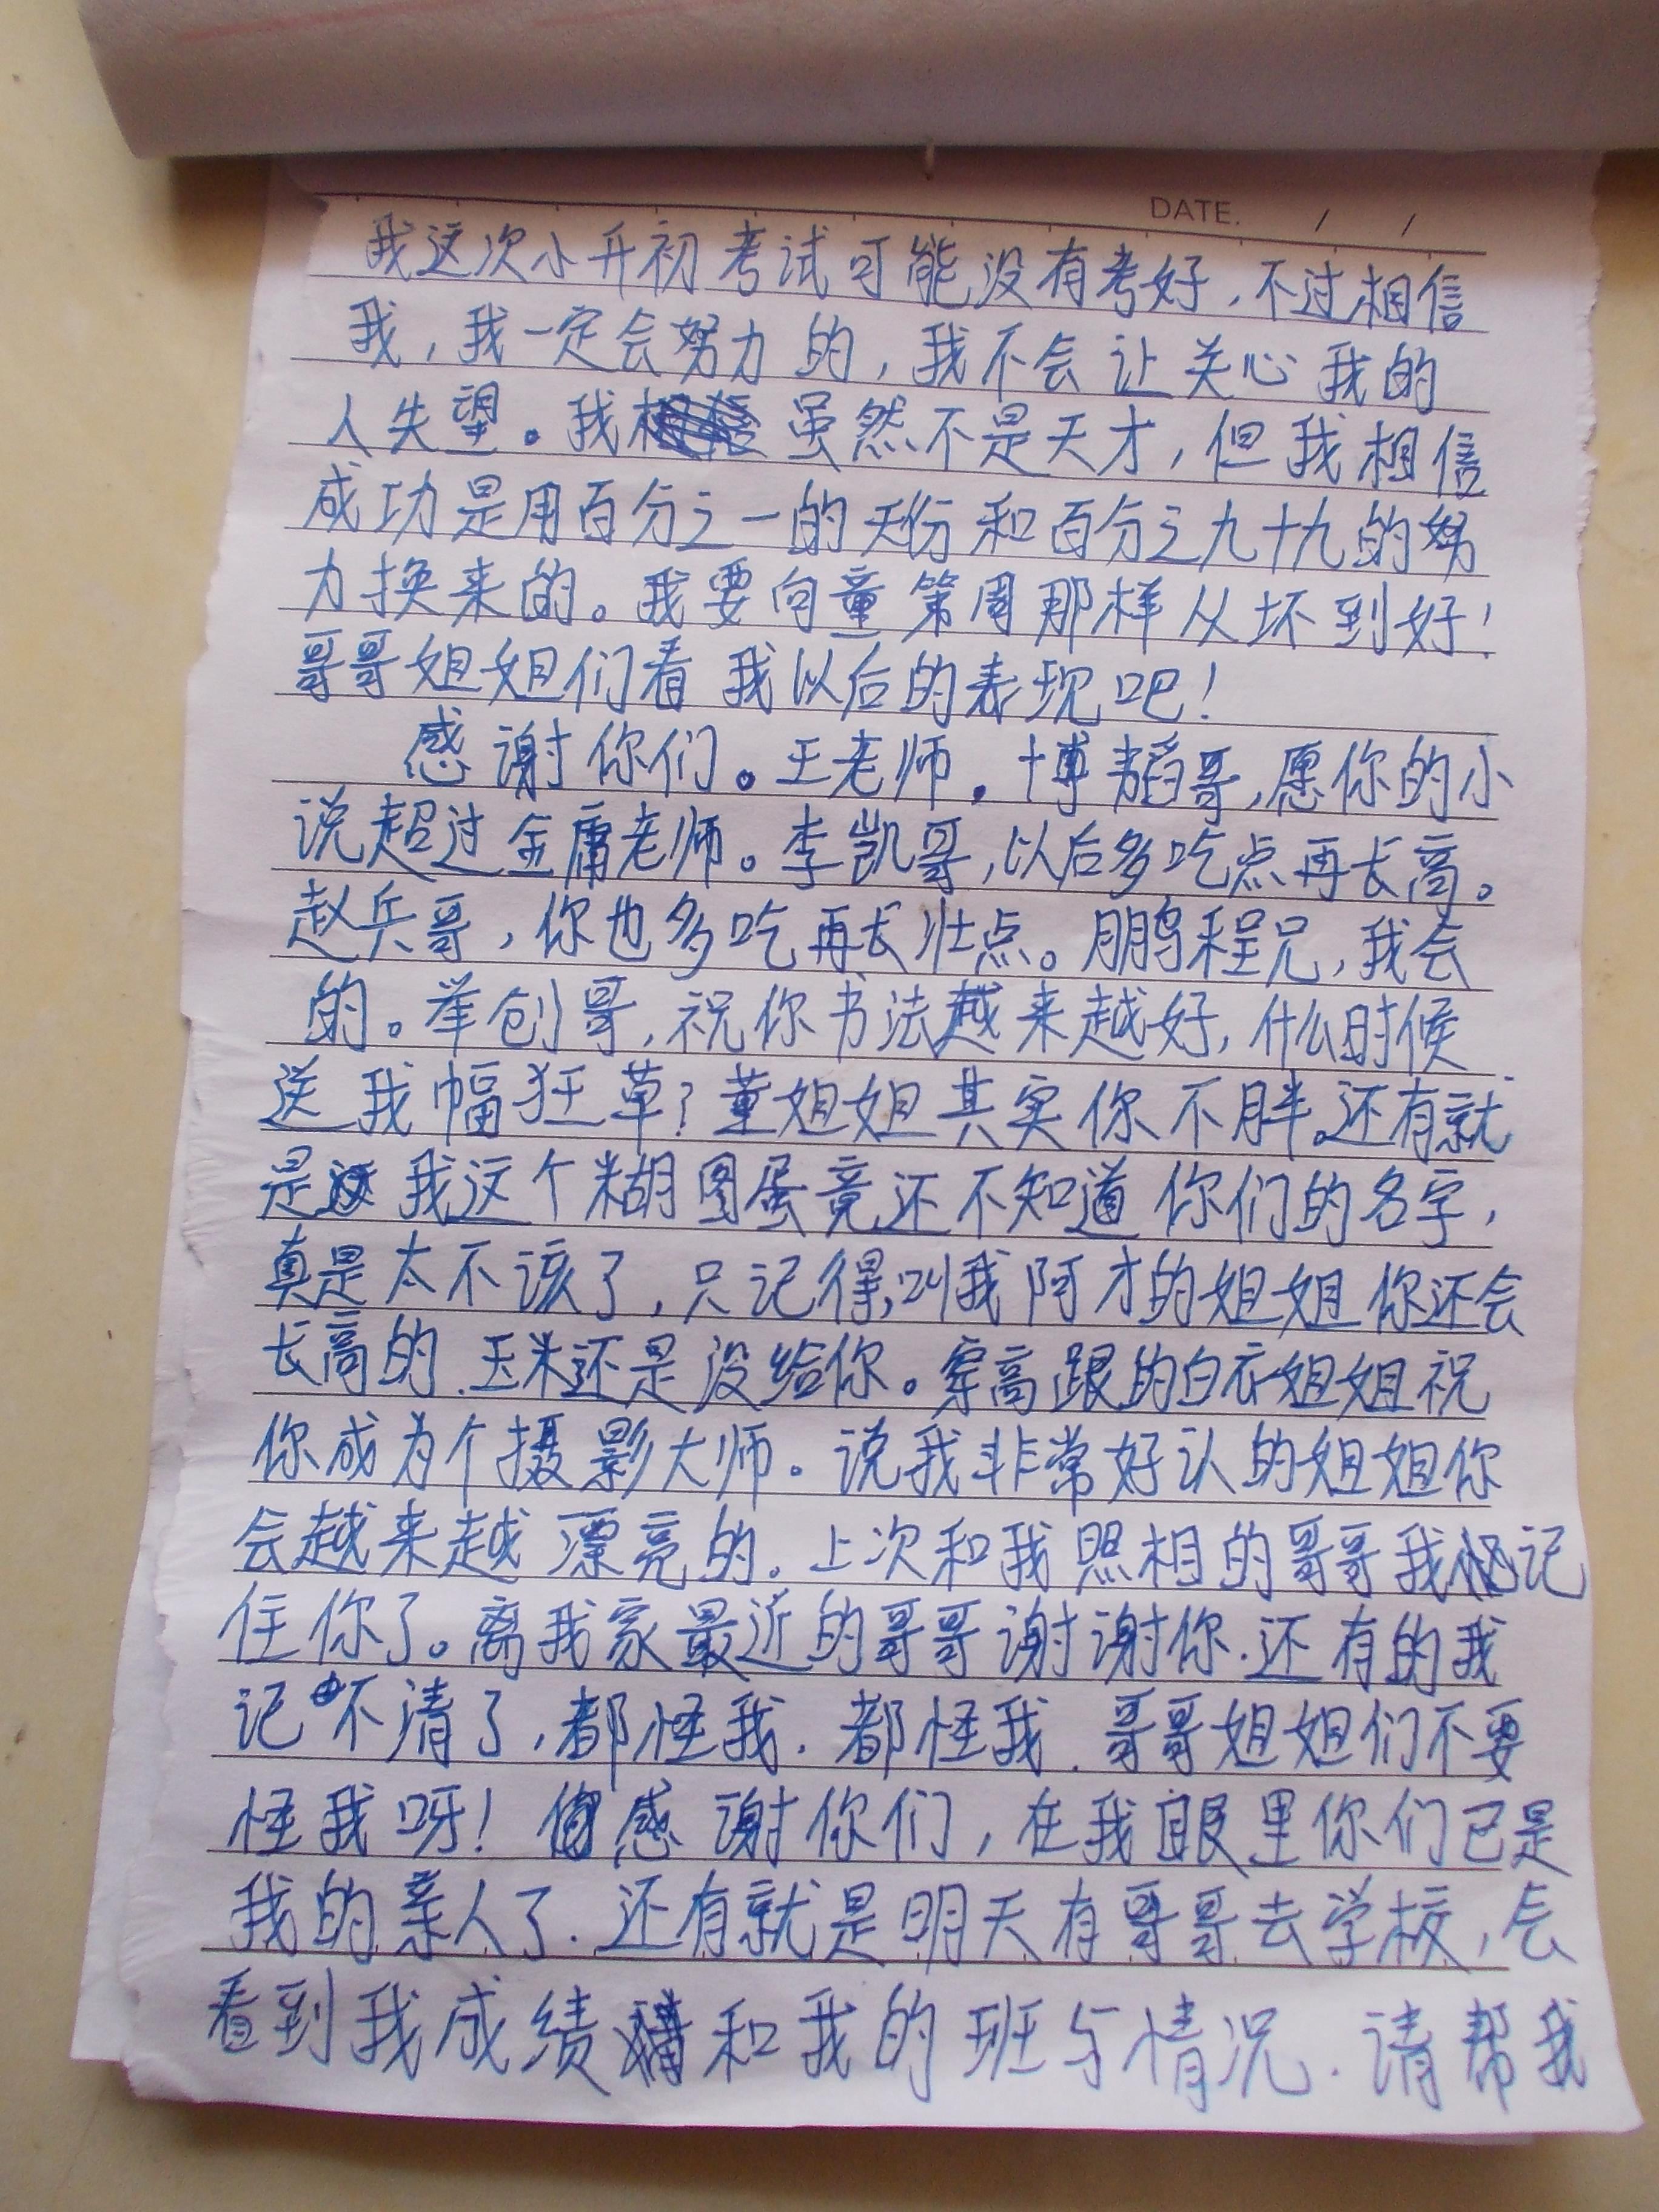 DATE. / /
我这次小升初考试可能没有考好,不过相信
我,我一定会努力的,我不会让关心我的
人失望。我虽然不是天才,但我相信
成功是用百分之一的天份和百分之九十九的努
力换来的。我要向童第周那样从坏到好!
哥哥姐姐们看我以后的表现吧!
感谢你们。王老师。博韬哥,愿你的小
说超过金庸老师。李凯哥,以后多吃点再长高。
赵兵哥,你也多吃再长壮点。鹏程兄,我会
的。举创哥,祝你书法越来越好,什么时候
送我幅狂草?董姐姐其实你不胖。还有就
是我这个糊图蛋竟还不知道你们的名字,
真是太不该了,只记得,叫我阿才的姐姐你还会
长高的.玉米还是没给你。穿高跟的白衣姐姐祝
你成为个摄影大师。说我非常好认的姐姐你
会越来越漂亮的.上次和我照相的哥哥我记
住你了。离我家最近的哥哥谢谢你.还有的我
记不清了,都怪我.都怪我.哥哥姐姐们不要
怪我呀!感谢你们,在我眼里你们已是
我的亲人了.还有就是明天有哥哥去学校,会
看到我成绩和我的班与情况.请帮我